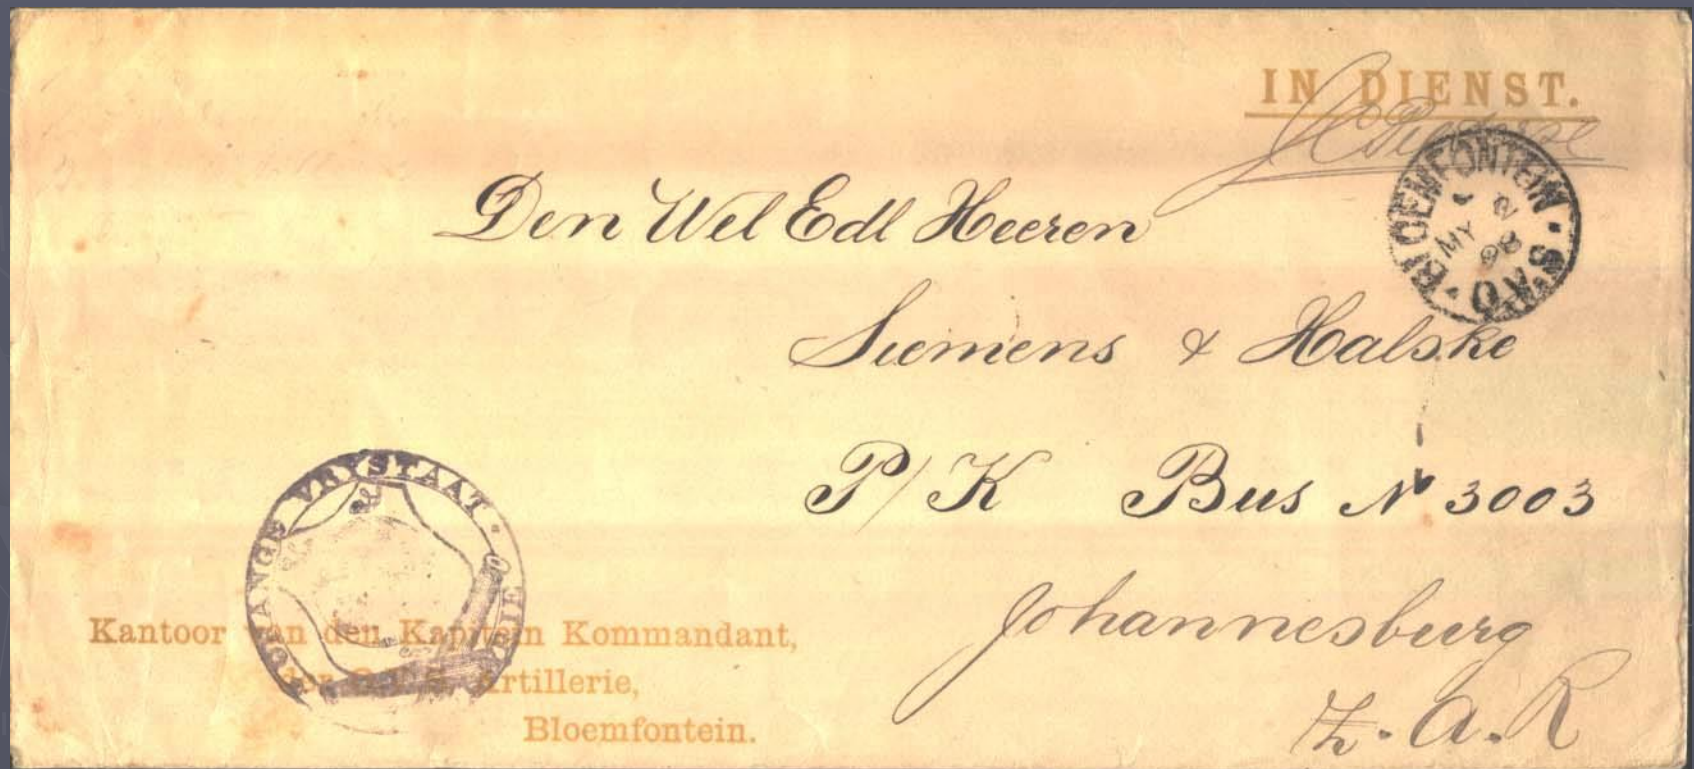 IN DIENST.
BLOEMFONTEIN · O.V.S.
MY 2
98
Den Wel Edl Heeren
Siemens & Halske
P/K Bus No 3003
Johannesburg
Z.A.R
ORANGE VRYSTAAT
Kantoor van den Kapitein Kommandant,
der O.V.S. Artillerie,
Bloemfontein.